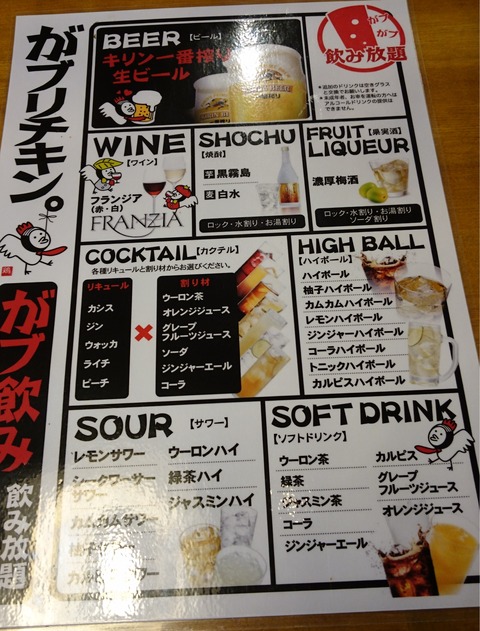 がブリチキン。
がブ飲み
飲み放題
がブ
がブ
飲み放題
＊追加のドリンクは空きグラス
と交換でお願いします。
＊未成年者、お車を運転の方へは
アルコールドリンクの提供は
できません。
BEER【ビール】
キリン一番搾り
生ビール
WINE
【ワイン】
フランジア
(赤・白)
FRANZIA
SHOCHU
【焼酎】
芋 黒霧島
麦 白水
ロック・水割り・お湯割り
FRUIT【果実酒】
LIQUEUR
濃厚梅酒
ロック・水割り・お湯割り
ソーダ割り
COCKTAIL【カクテル】
各種リキュールと割り材からお選びください。
リキュール
カシス
ジン
ウォッカ
ライチ
ピーチ
×
割り材
ウーロン茶
オレンジジュース
グレープ
フルーツジュース
ソーダ
ジンジャーエール
コーラ
HIGH BALL
【ハイボール】
ハイボール
柚子ハイボール
カムカムハイボール
レモンハイボール
ジンジャーハイボール
コーラハイボール
トニックハイボール
カルピスハイボール
SOUR【サワー】
レモンサワー
シークワーサー
サワー
カムカムサワー
サワー
ウーロンハイ
緑茶ハイ
ジャスミンハイ
SOFT DRINK
【ソフトドリンク】
ウーロン茶
緑茶
ジャスミン茶
コーラ
ジンジャーエール
カルピス
グレープ
フルーツジュース
オレンジジュース